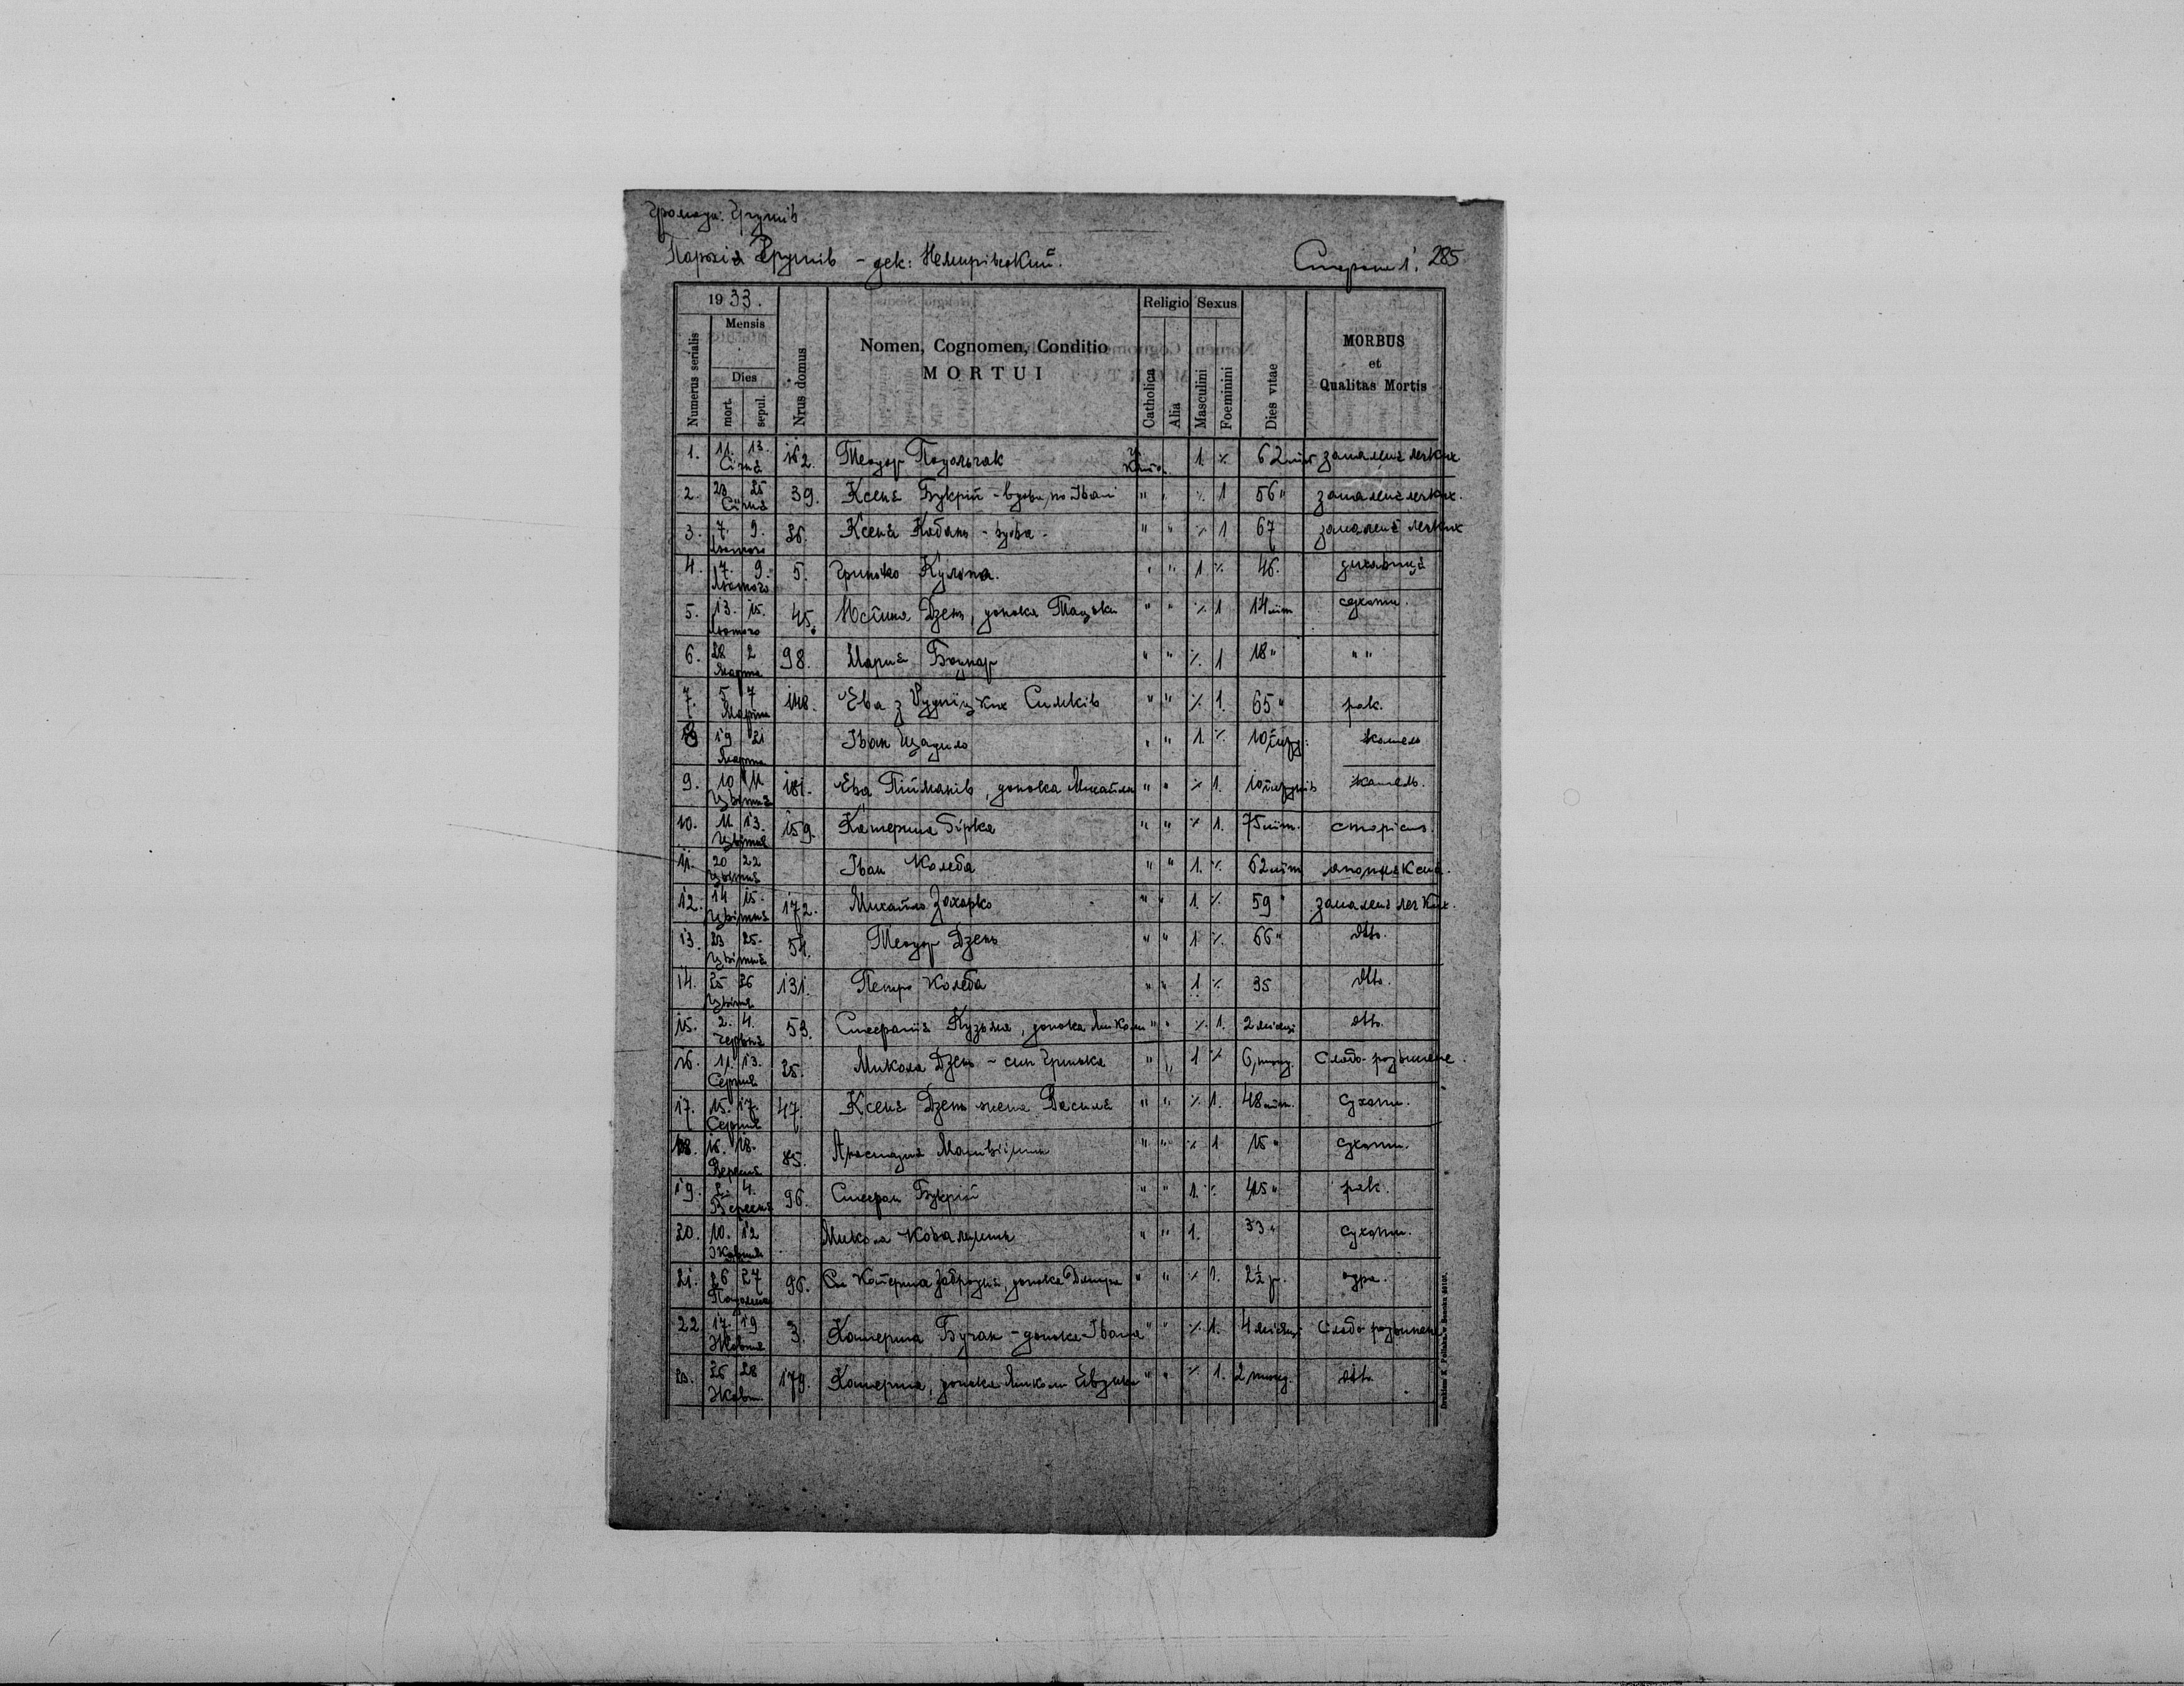 Громада: Грушів
Парохія Грушів - дек: Немирівський.
Сторона 1. 285
1933.
Numerus serialis
Mensis
Dies
mort.
sepul.
Nrus domus
Nomen, Cognomen, Conditio
MORTUI
Religio
Catholica
Alia
Sexus
Masculini
Foeminini
Dies vitae
MORBUS
et
Qualitas Mortis
1. 11. 13. Січня 162. Теодор Подольчак гр. кат. 1. % 62 літ запаленє легких
2. 23 25 Січня 39. Ксеня Букрій - вдова по Івані " " % 1 56 " запаленє легких.
3. 7. 9. Лютого 26. Ксеня Кобань - вдова. " " % 1 67 запаленє легких
4. 7. 9. Лютого 5. Гринько " " 1 % 46. дихавиця
5. 13. 15. Лютого 45. Юстина Дзень, донька " " % 1 14 літ сухоти.
6. 28 2 Марта 98. Марія Боднар " " % 1 18 " " "
7. 5 7 Марта 148. Ева з Рудніцких Симків " " % 1. 65 " рак.
8 19 21 Марта Іван " " 1. % 10 кашель
9. 10 11 Цвітня 181. Ева Пійманів, донька Михайла " " % 1. 10 кашель.
10. 11 13. Цвітня 159. Катерина Гірка " " % 1. 75 літ. старість.
11. 20 22 Цвітня Іван Колеба " " 1. % 62 літ апоплексія.
12. 14 15. Цвітня 172. Михайло Захарко " " 1 % 59 " запаленє легких.
13. 23 25. Цвітня 54. Теодор Дзень " " 1 % 66 " dtto.
14. 25 26 Цвітня 131. Петро Колеба " " 1 % 35 dtto.
15. 2. 4. Червня 53. Стефанія Кузьма, донька Миколи " " % 1. 2 місяці dtto.
16. 11. 13. Серпня 25. Микола Дзень - син Гринька " " 1 % 6 тижд. Слабо розвинене.
17. 15. 17. Серпня 47. Ксеня Дзень жена Василя " " % 1. 48 літ. Сухоти.
18. 16. 18. Вересня 85. Анастазия " " % 1 15 " Сухоти.
19. 2. 4. Вересня 96. Стефан Букрій " " 1. % 45 " рак.
20. 10. 12 Жовтня Микола " " 1. 33 " Сухоти.
21. 26 27 96. Катерина донька Дмитра " " % 1. 2½ р. одра.
22 17. 19 Жовтня 3. Катерина Бучак - донька Івана " " % 1. 4 місяці Слабо розвинена
23. 26 28 Жовт. 179. Катерина, донька Миколи " " % 1. 2 тижд. dtto.